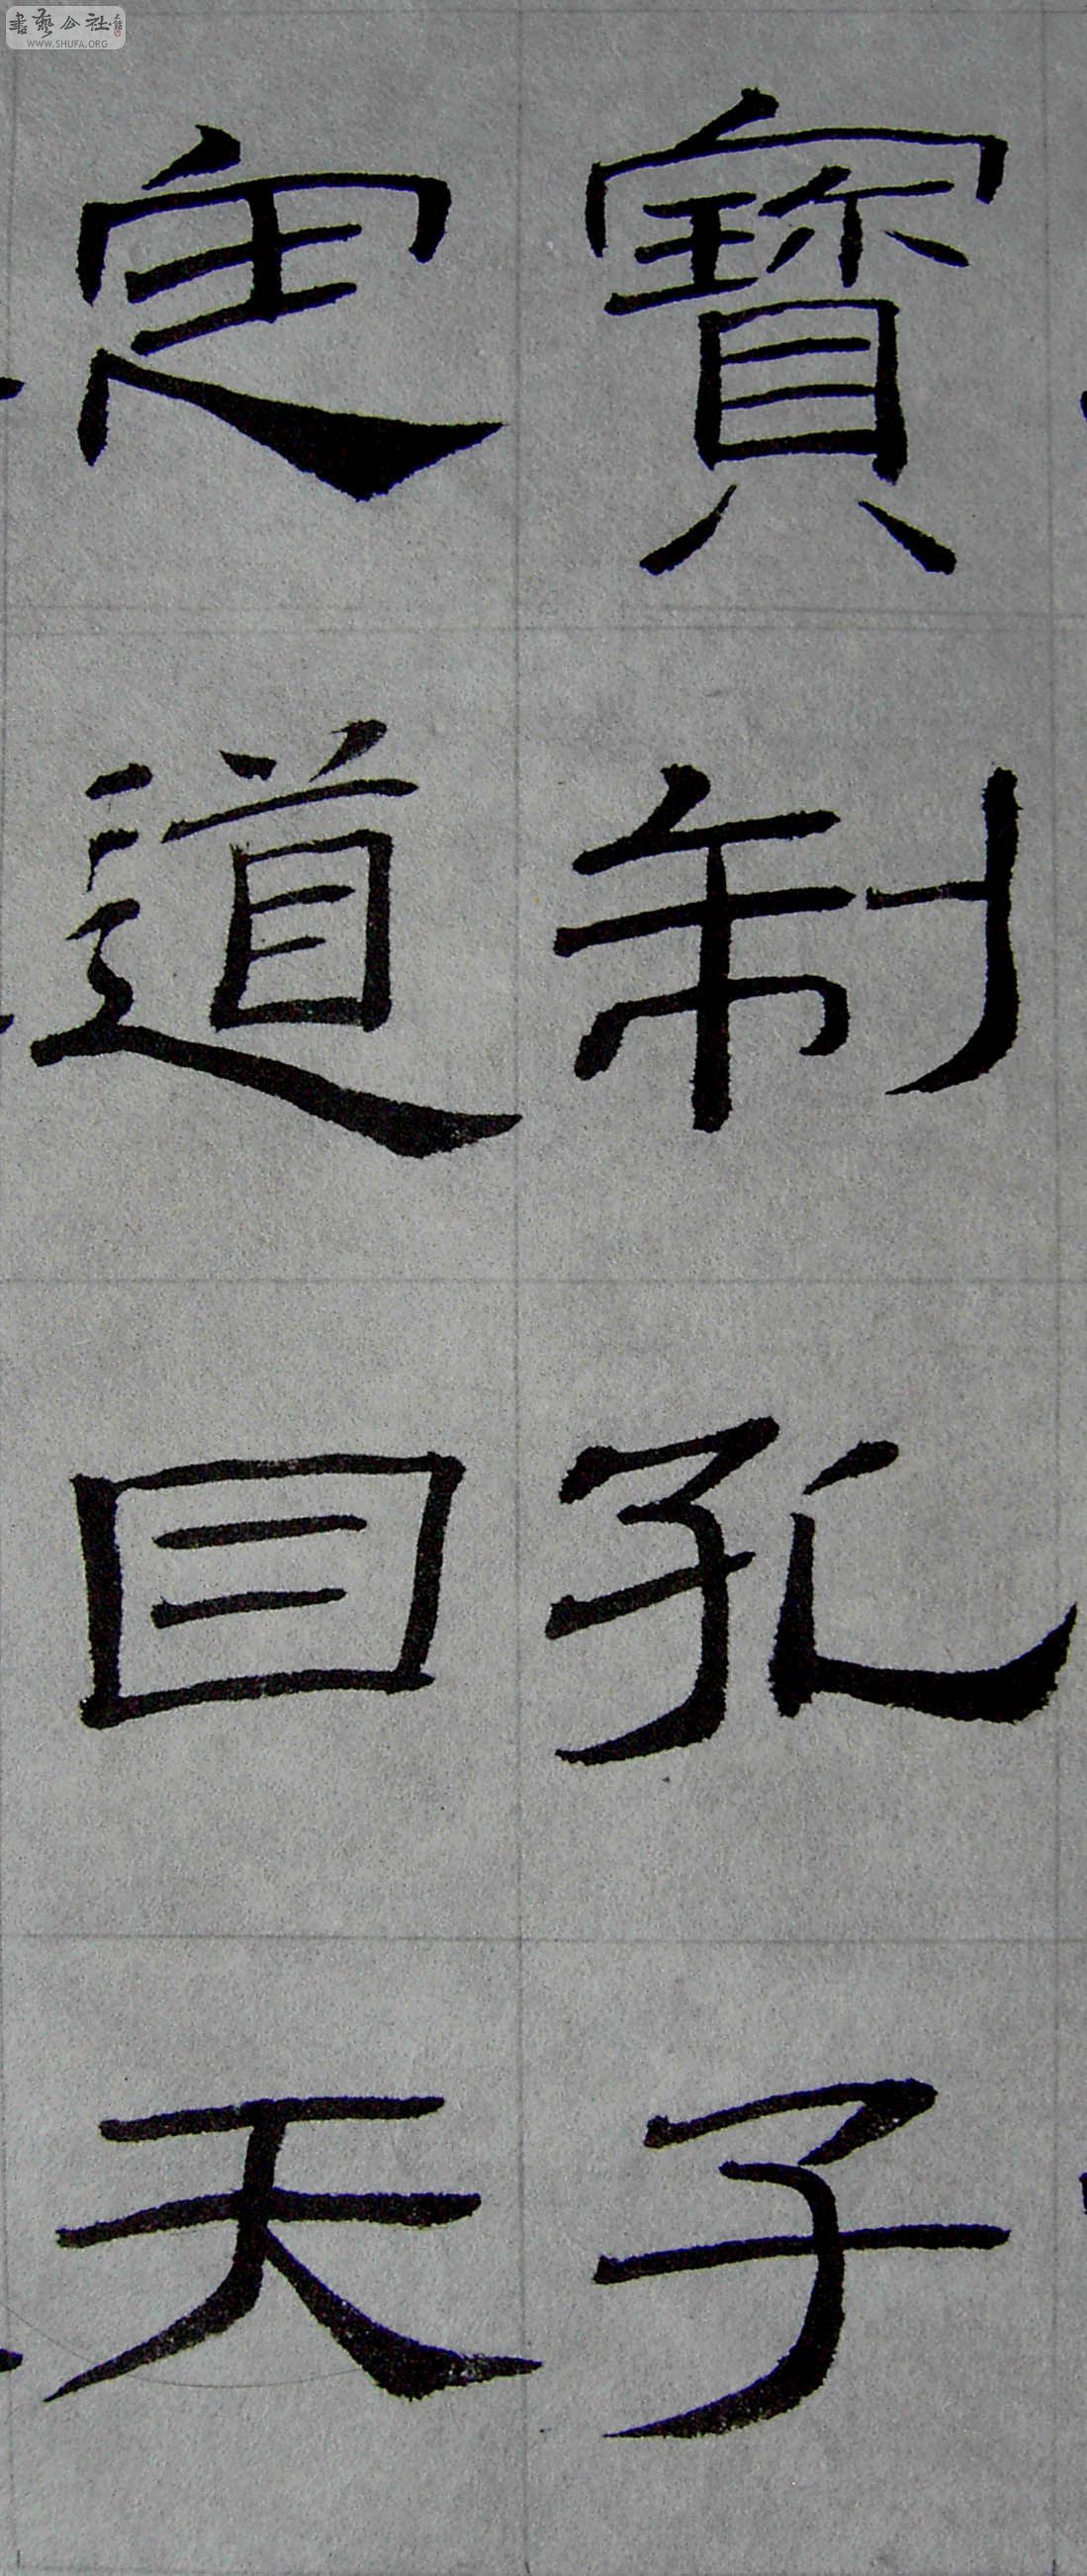 書藝公社
WWW.SHUFA.ORG
寳制孔子
定道目天